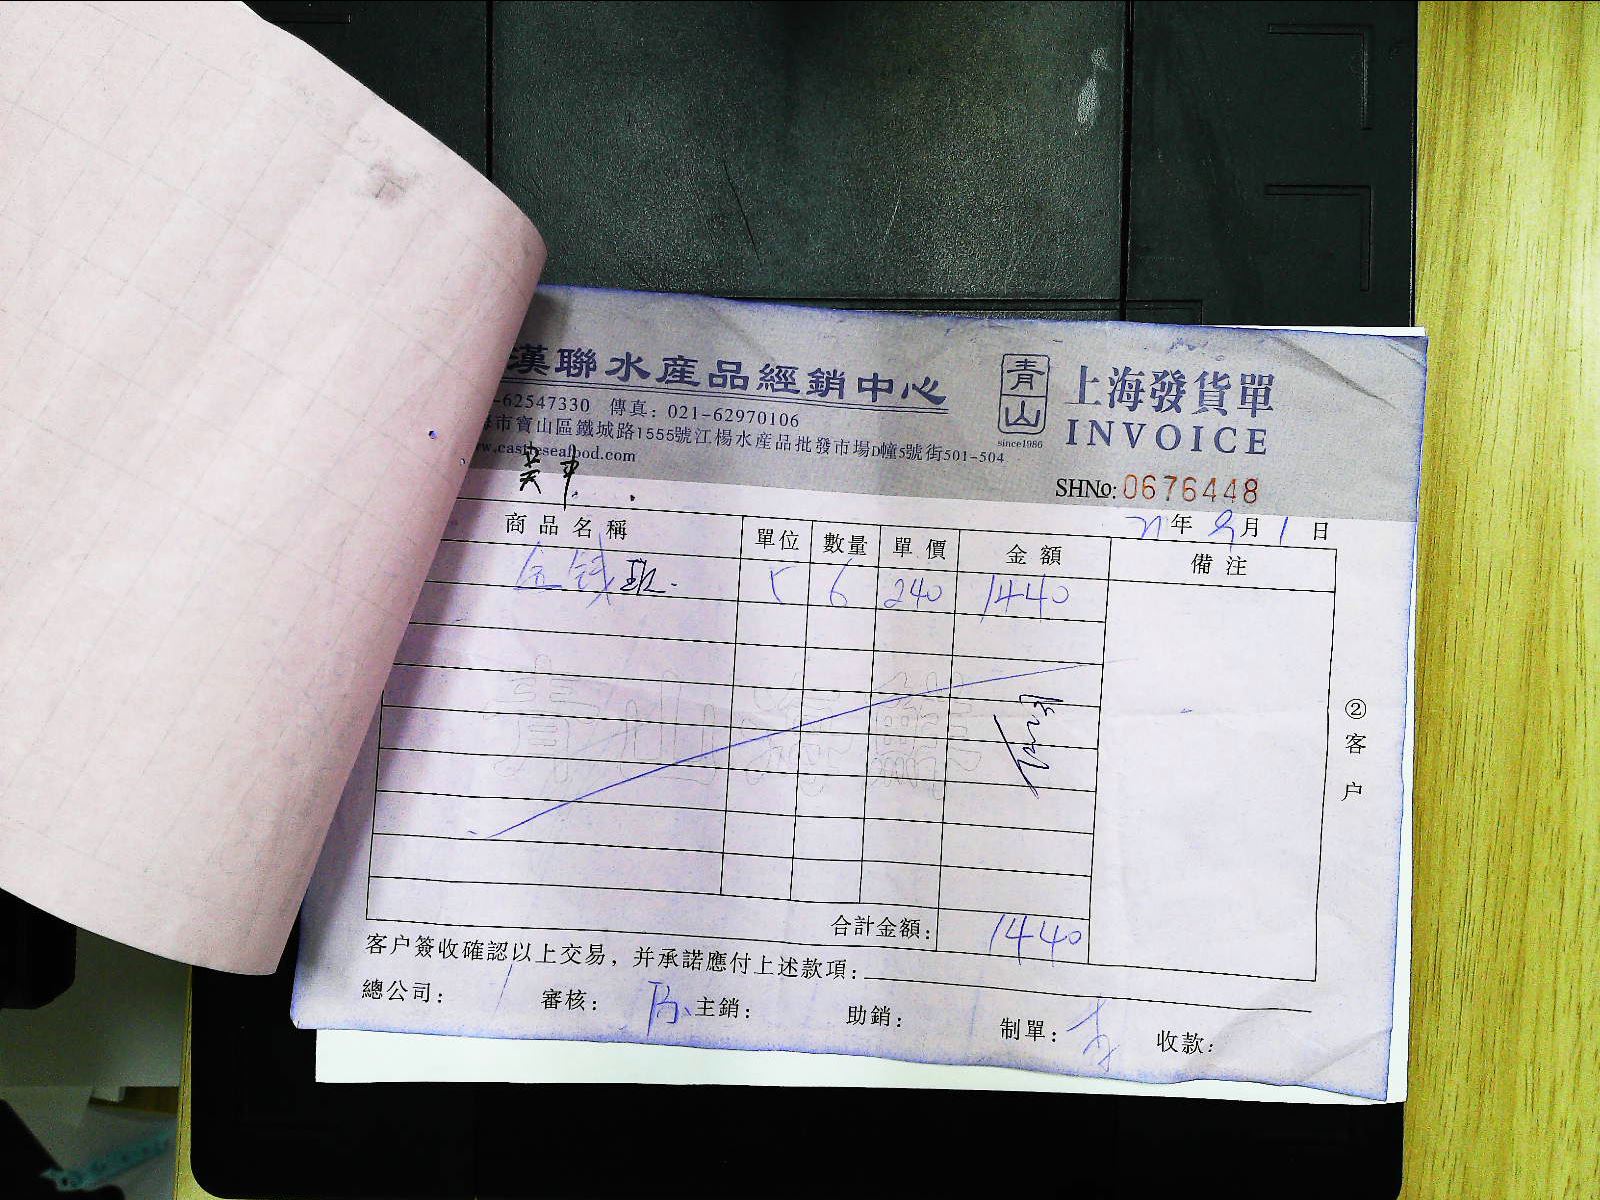 漢聯水產品經銷中心
青山
since1986
上海發貨單
INVOICE
-62547330 傳真：021-62970106
市寶山區鐵城路1555號江楊水產品批發市場D幢5號街501-504
www.castleseafood.com
SHNo: 0676448
21年 9月 1日
商品名稱 單位 數量 單價 金額 備注
金钱斑 6 240 1440
青山
②客户
合計金額: 1440
客户簽收確認以上交易，并承諾應付上述款項：
總公司： 審核： 主銷： 助銷： 制單： 收款：